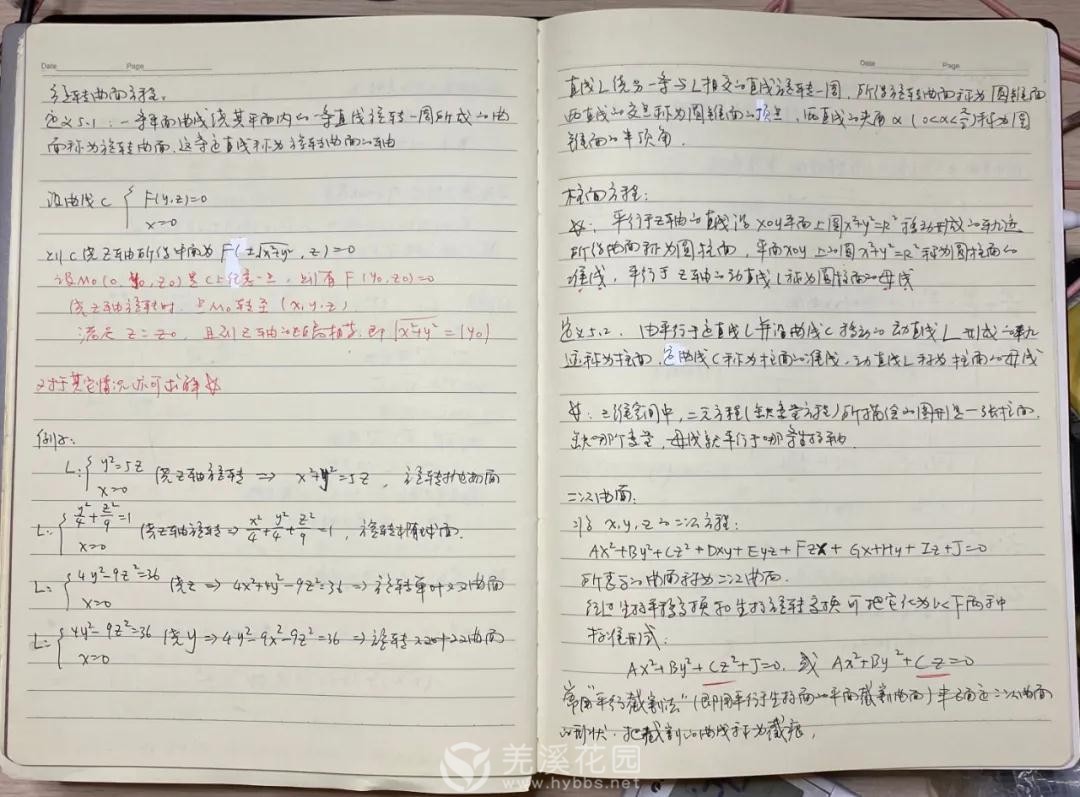 Date Page
旋转曲面方程。
定义5.1：一条平面曲线绕其平面内的一条直线旋转一周所成的曲
面称为旋转曲面，这条定直线称为旋转曲面的轴
设曲线C { F(y,z)=0
x=0
则C绕Z轴所得曲面为 F(±√x²+y², z)=0
设M0(0, y0, z0)是C上任意一点，则有 F(y0,z0)=0
绕Z轴旋转时，点M0转至(x,y,z)
满足 z=z0，且到Z轴的距离相等，即√x²+y²=|y0|
对于其它情况亦可求解
例如：
L:{ y²=5z 绕Z轴旋转 ⇒ x²+y²=5z，旋转抛物面
x=0
L:{ y²/4+z²/9=1 绕Z轴旋转⇒ x²/4+y²/4+z²/9=1，旋转椭球面.
x=0
L:{ 4y²-9z²=36 绕z ⇒ 4x²+4y²-9z²=36 ⇒旋转单叶双曲面
x=0
L:{ 4y²-9z²=36 绕y ⇒ 4y²-9x²-9z²=36 ⇒旋转双叶双曲面
x=0
Date Page
直线L绕另一条与L相交的直线旋转一周，所得旋转曲面称为圆锥面
两直线的交点称为圆锥面的顶点，两直线的夹角α(0<α<π/2)称为圆
锥面的半顶角.
柱面方程：
平行于Z轴的直线沿xoy平面上圆x²+y²=R²移动形成的轨迹
所得曲面称为圆柱面，平面xoy上的圆x²+y²=R²称为圆柱面的
准线，平行于Z轴的动直线L称为圆柱面的母线
定义5.2. 由平行于定直线L并沿曲线C移动的动直线L形成的轨
迹称为柱面，定曲线C称为柱面的准线，动直线L称为柱面的母线
三维空间中，二元方程(缺变量方程)所描绘的图形是一张柱面.
缺哪个变量，母线就平行于哪条坐标轴.
二次曲面.
x,y,z的二次方程：
Ax²+By²+Cz²+Dxy+Eyz+Fzx+Gx+Hy+Iz+J=0
所表示的曲面称为二次曲面.
经过坐标平移变换和坐标旋转变换可把它化为以下两种
标准形式：
Ax²+By²+Cz²+J=0. 或 Ax²+By²+Cz=0
常用"平行截割法"(即用平行于坐标面的平面截割曲面)来确定二次曲面
的形状. 把截割的曲线称为截痕.
羌溪花园
www.hybbs.net